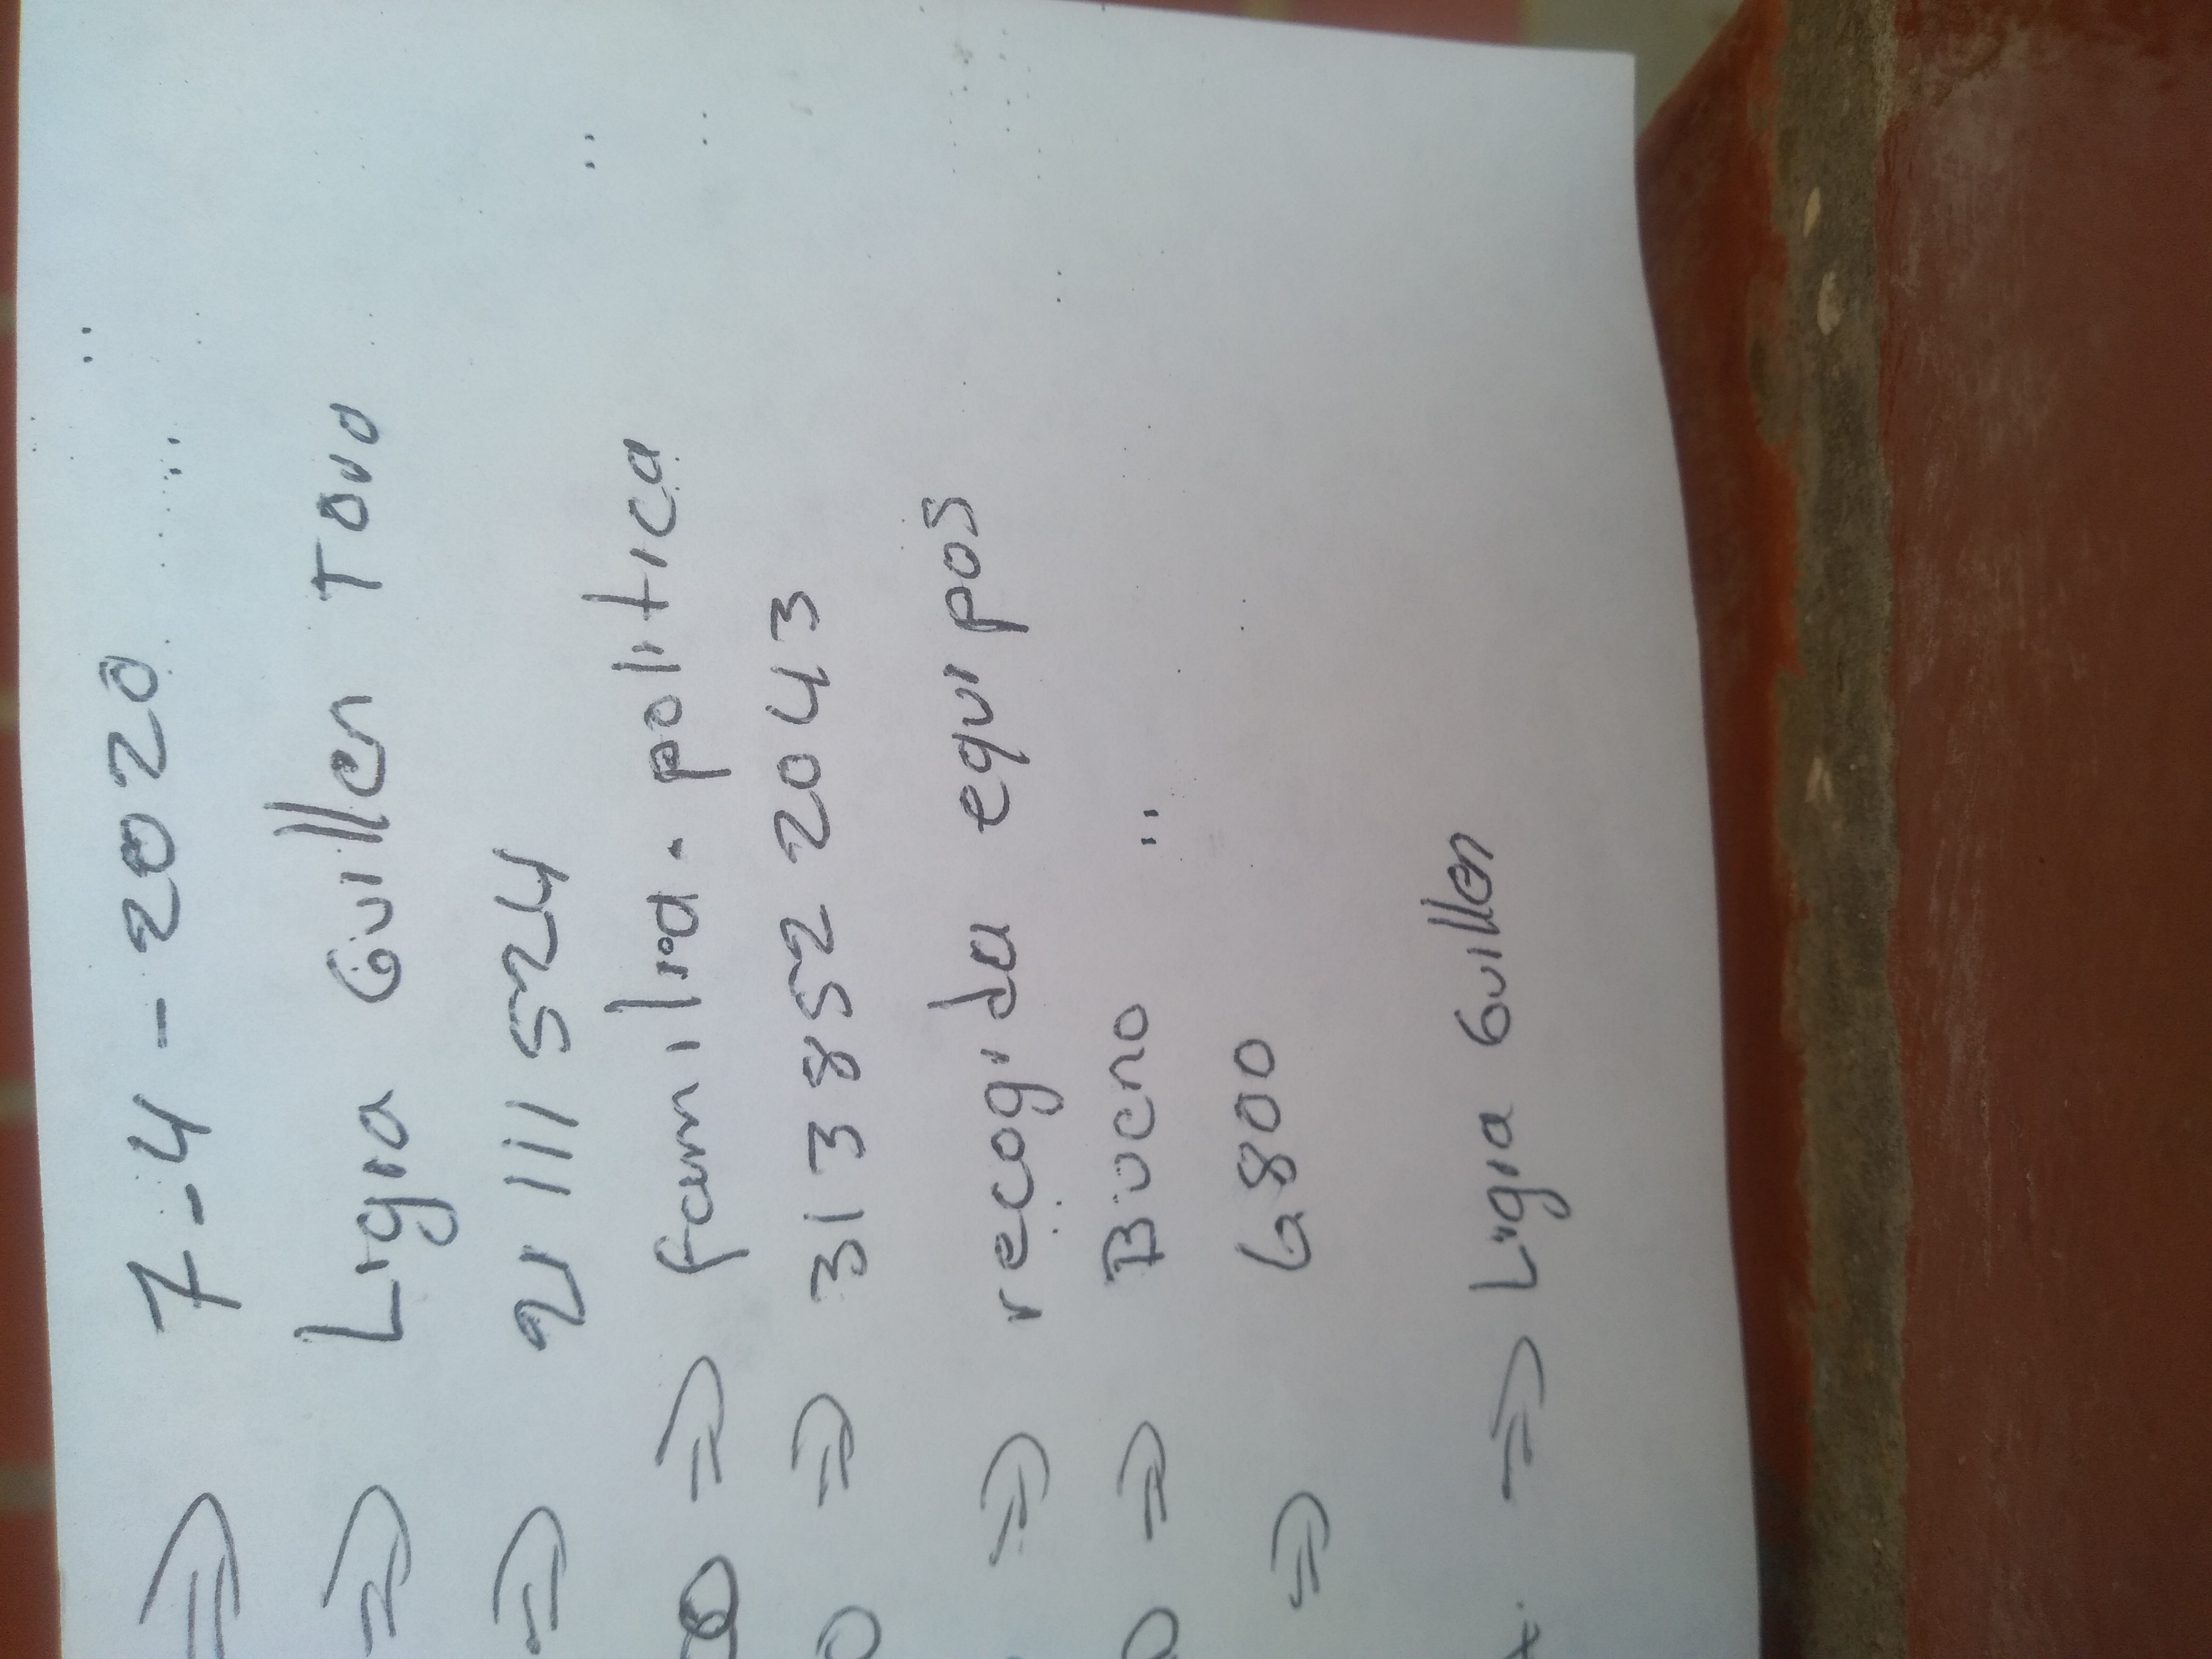 ⇒ 7-4-2020
⇒ Ligia Guillen Tovo
⇒ 21111524
⇒ familia. politica
⇒ 313 852 2043
⇒ recogida equipos
⇒ Bueno
⇒ 6800
⇒ Ligia Guillen